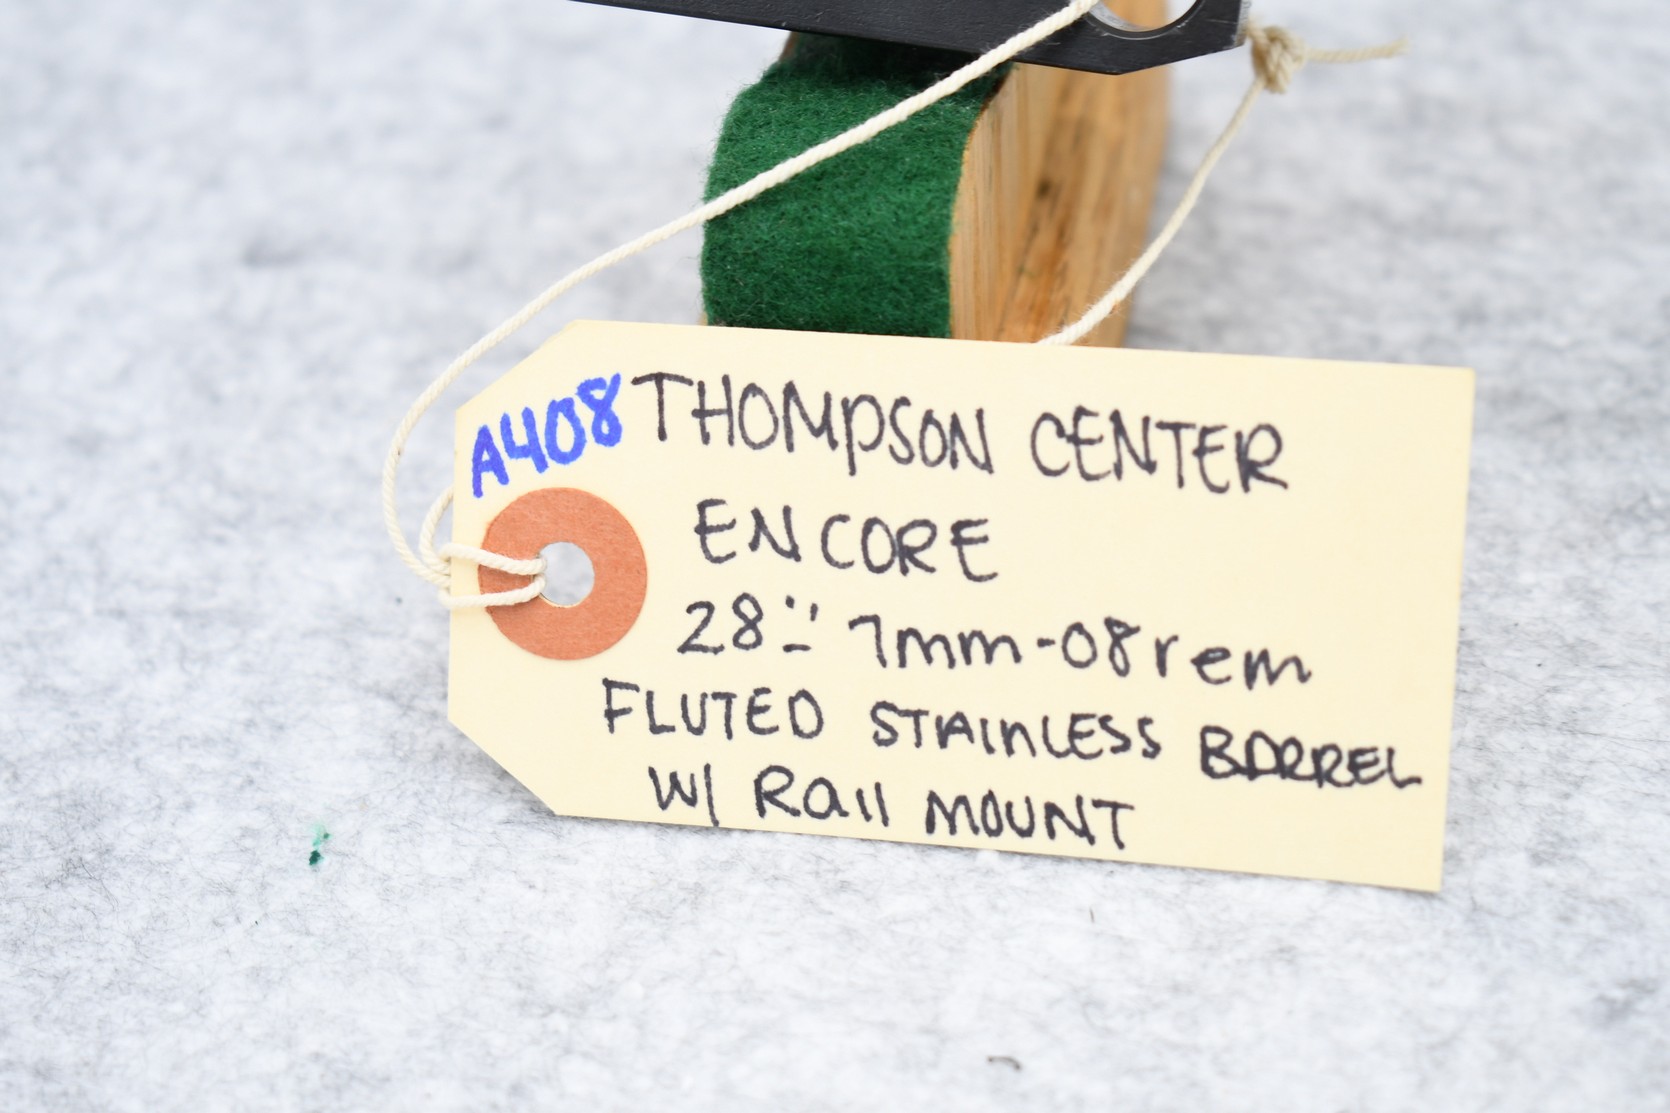 A408 THOMPSON CENTER
ENCORE
28" 7mm-08 rem
FLUTED STAINLESS BARREL
W/ RAIL MOUNT